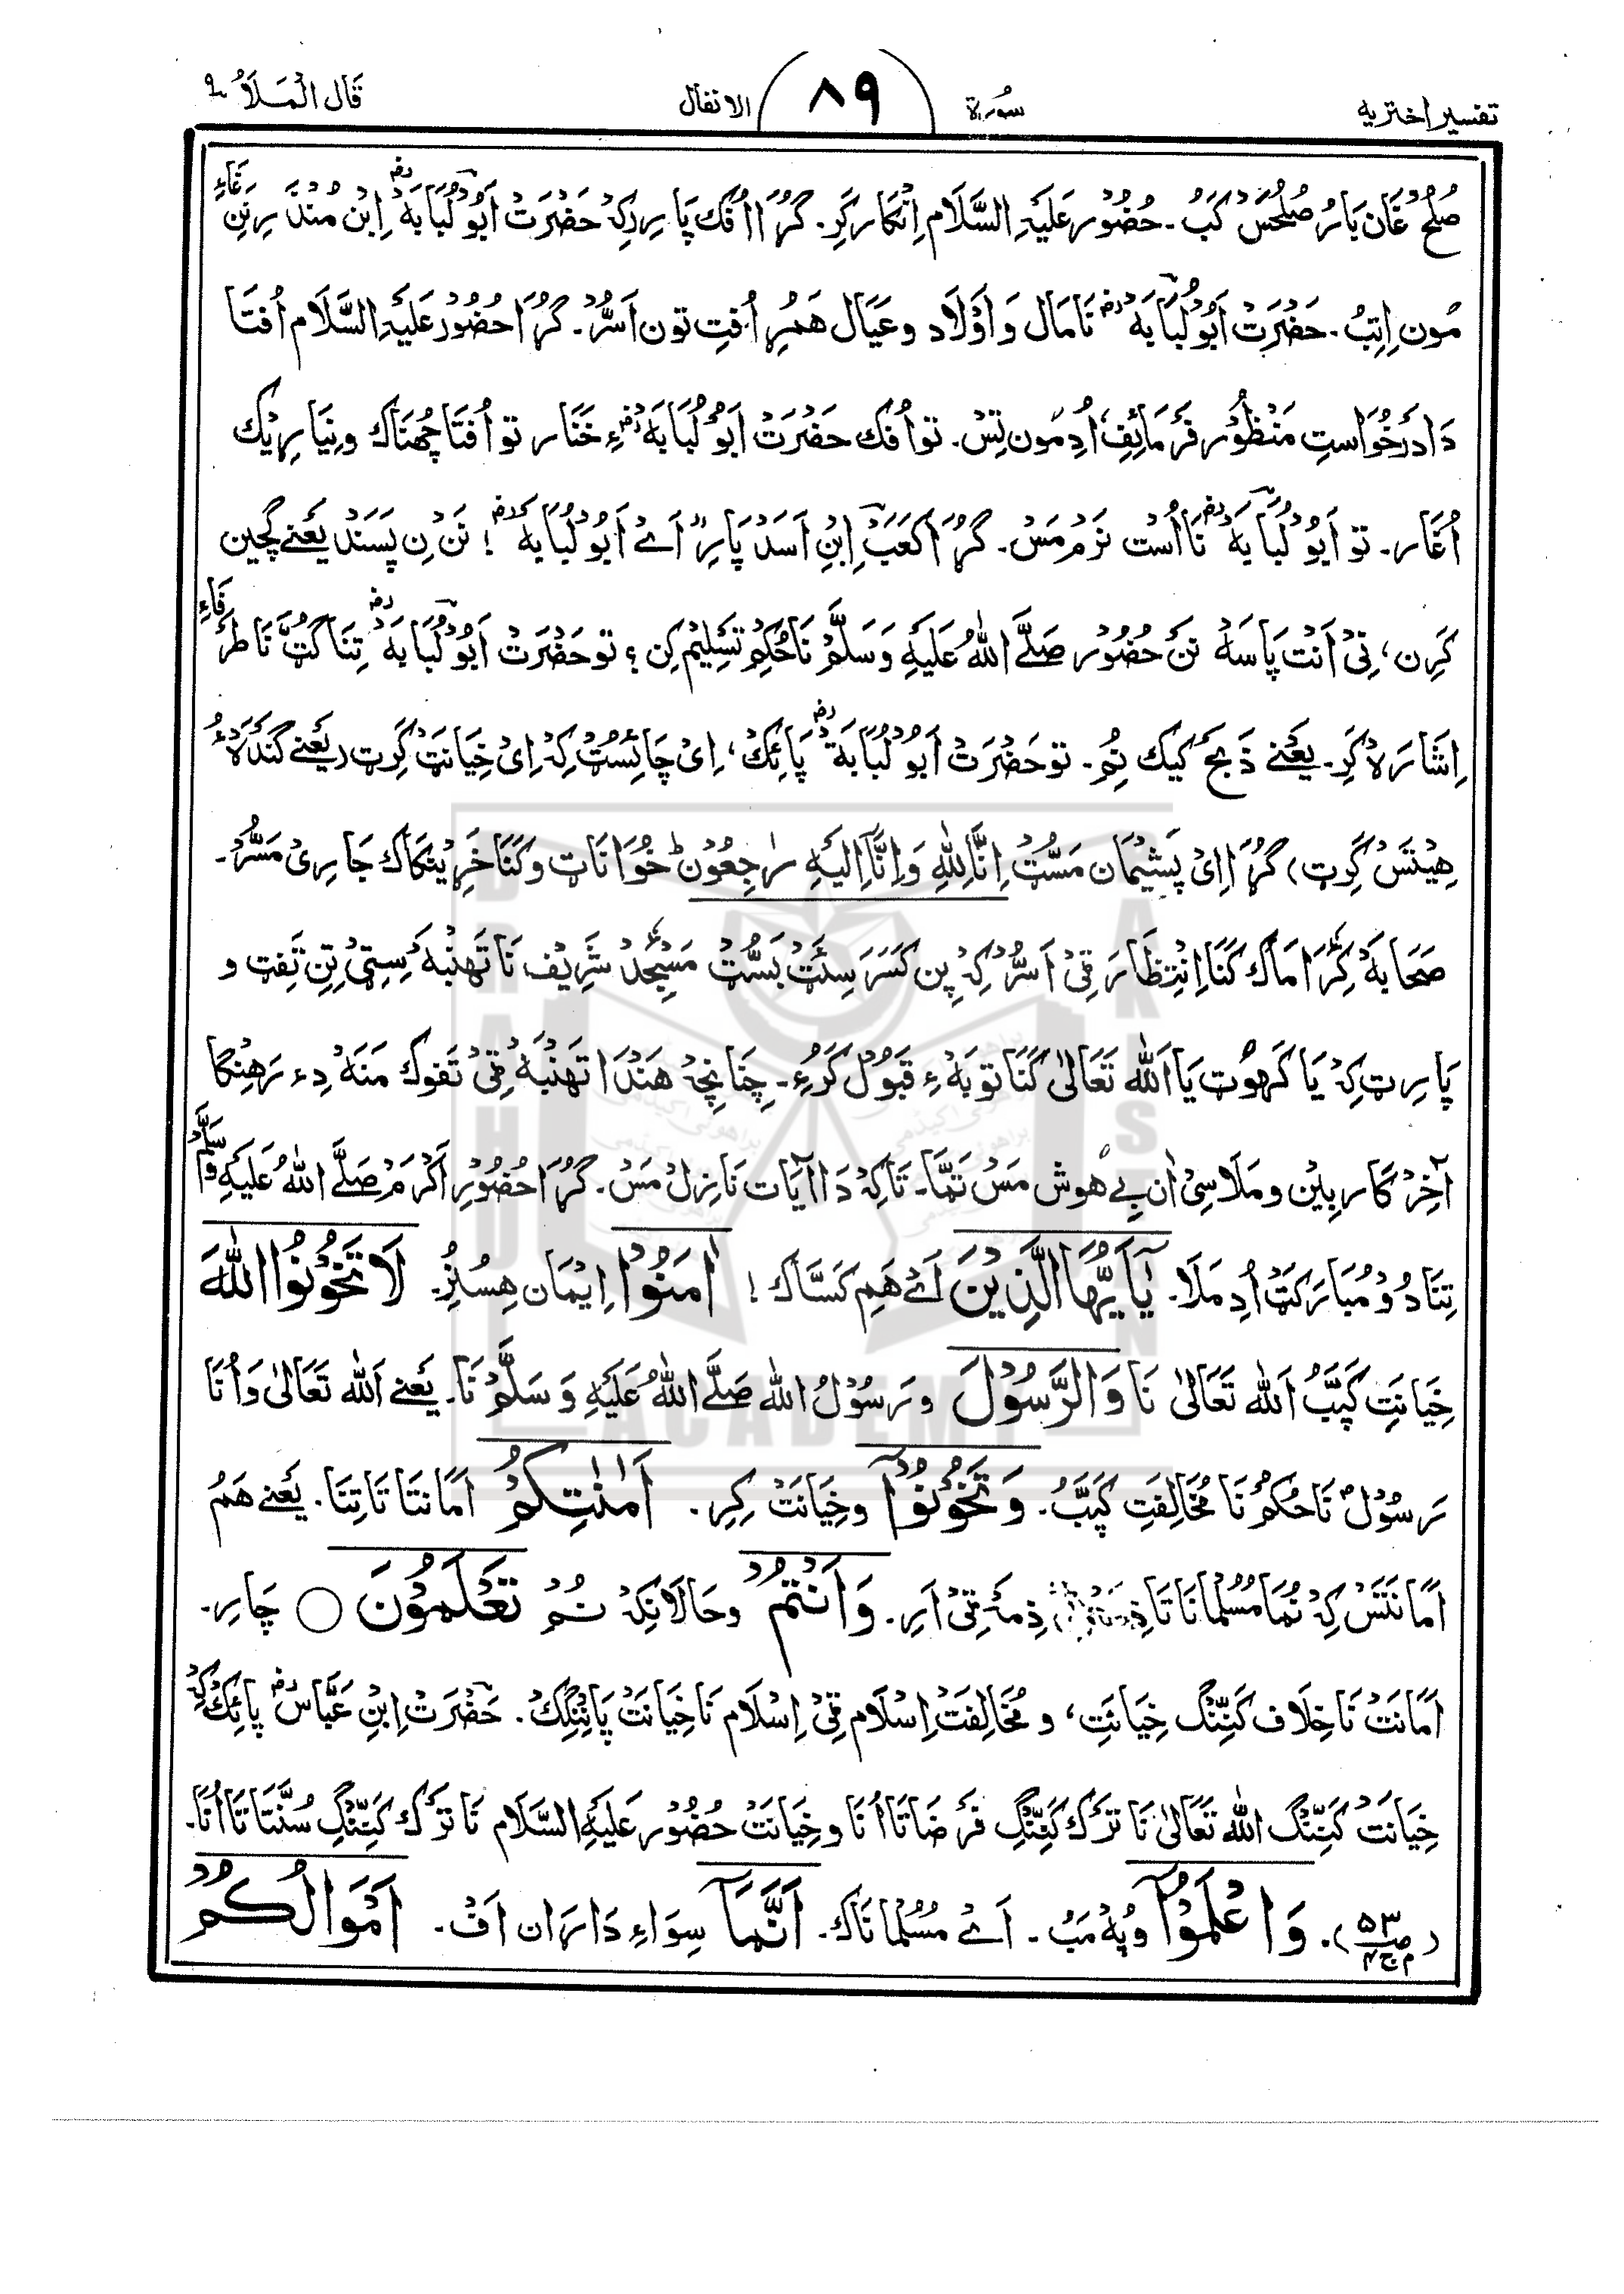 تفسیر اختریه سُورة ٨٩ الانفال قَالَ الْمَلَاُ ۹
صُلح غَان بَارُ صُلحَس کَبُ ۔ حُضُوْر عَلَیْہِ السَّلَام اِنْکَار کَرِ ۔ گُڑَا اُفک پَارِر کِہْ حَضْرَتْ اَبُوْلُبَابَہْ رض اِبْن مُنْذَرِ نَنِ غَاءِ
مُون اِتبُ ۔ حَضْرَتْ اَبُوْلُبَابَہْ رض نَا مَال وَ اَوْلَاد و عَیَال هَمُرِ اُفتِ تون اَسُّر ۔ گُڑَا حُضُوْر عَلَیْہِ السَّلَام اُفتَا
دَا دَرْخُوَاستِ مَنْظُوْر فَرْمَائِفِ، اُدِ مُون تِسْ ۔ تو اُفک حَضْرَتْ اَبُوْلُبَابَہْ رض ءِ خَنَار تو اُفتَا چُھنَاک و نِیَارِیْک
اُغَار ۔ تو اَبُوْلُبَابَہْ رض نَا اُست نَرْم مَسْ ۔ گُڑَا کَعَبْ اِبْنِ اَسَدْ پَارِ "اَےْ اَبُوْلُبَابَہْ رض ! نَن نِ پَسَنْد یَعْنےْ گچین
کَرِن، نِیْ اَنْتْ پَاسَہْ نَن حُضُوْر صَلَّے اللّٰهُ عَلَیْہِ وَسَلَّمْ نَا حُکِم تَسْلِیْم کِن ؟ تو حَضْرَتْ اَبُوْلُبَابَہْ رض تِنَا گُٹَّ نَا طَرَفَاءِ
اِشَارَہْ کَرِ ۔ یَعْنےْ ذَبحَ کیک نُمِ ۔ تو حَضْرَتْ اَبُوْلُبَابَةْ رض پَائِکْ، اِیْ چَائِسُّٹْ کِہْ اِیْ خِیَانَتْ کِرِٹ (یَعْنےْ گَنْدَہْ ءُ
هِیْتَسْ کِرِٹ) گُڑَا اِیْ پَشِیْمَان مَسُّٹْ اِنَّا لِلّٰهِ وَاِنَّا اِلَیْهِ رٰجِعُوْنَ ط خُوَانَاٹ و کَنَا خَرِیْنکَاک جَارِیْ مَسُّرْ ۔
صَحَابَہْ کِرَامَاک کَنَا اِنْتِظَار ٹِیْ اَسُّرْ کِہْ پِن کَسَرَ سِٹَتْ بَسُّٹْ مَسْجِدْ شَرِیْف نَا تَھنْبَہْ سِتِیْ تِنِ تَفِٹ و
پَارِٹ کِہْ یَا کَھوِٹ یَا اَللّٰه تَعَالیٰ کَنَا توبَہْ ءِ قَبُوْل کَرُءِ ۔ چِنَانچِہْ هَنْدَا تَھنْبَہْ ٹِیْ تَفوک مَنَہْ دِء رَهِنگَا
آخِرْکَار بِیْن و مَلَاسِیْ اَن بِےْ هُوش مَسْ تَمَّا ۔ تَاکِہْ دَا آیَات نَازِلْ مَسْ ۔ گُڑَا حُضُوْرِ اَکْرَمْ صَلَّے اللّٰهُ عَلَیْہِ وَسَلَّمْ
تِنَا دُوْ مُبَارَکَتْ اُدِ مَلَا ۔ یٰٓاَیُّهَا الَّذِیْنَ اَےْ هَمِ کَسَّاک ! اٰمَنُوْا اِیْمَان هِسُنُرِ ۔ لَا تَخُوْنُوا اللّٰهَ
خِیَانَتِ کَپَّبُ اَللّٰه تَعَالیٰ نَا وَالرَّسُوْلَ و رَسُوْلُ اللّٰه صَلَّے اللّٰهُ عَلَیْہِ وَسَلَّمْ نَا ۔ یَعْنےْ اَللّٰه تَعَالیٰ وَ اُنَا
رَسُوْلؐ نَا حُکم نَا مُخَالِفَتِ کَپَبُّ ۔ وَتَخُوْنُوْٓا و خِیَانَتْ کِرِ ۔ اَمٰنٰتِکُمْ اَمَانتَا تَا تِنَا ۔ یَعْنےْ هَمُ
اَمَانَتَسْ کِہْ نُمَا مُسُلمانَا تَا ذِمَّہْ ٹِیْ اَرِ ۔ وَاَنْتُمْ و حَالَانکِہْ نُمْ تَعْلَمُوْنَ ○ چَارِ ۔
اَمَانَتْ نَا خِلَاف کَنِّنْگ خِیَانَتِ، و مُخَالِفَتْ اِسْلَام ٹِیْ اِسْلَام نَا خِیَانَتْ پَانِنْگِکْ ۔ حَضْرَتْ اِبْنِ عَبَّاس رض پَائِکْ کِہْ
خِیَانَتْ کَنِّنْگ اَللّٰه تَعَالیٰ نَا تَرْک کَنِّنْگِ فَرضَاتَا اُنَا و خِیَانَتْ حُضُوْر عَلَیْہِ السَّلَام نَا تَرْک کَنِّنْگِ سُنَّتَا تَا اُنَا ۔
(ص ۵۳ م ج ۴) ۔ وَاعْلَمُوْٓا و پُهْ مَبُ ۔ اَےْ مُسُلمانَاک ۔ اَنَّمَآ سِوَاءِ دَارَان اَفْ ۔ اَمْوَالُکُمْ
BRAHUI
AKISTAN
ACADEMY